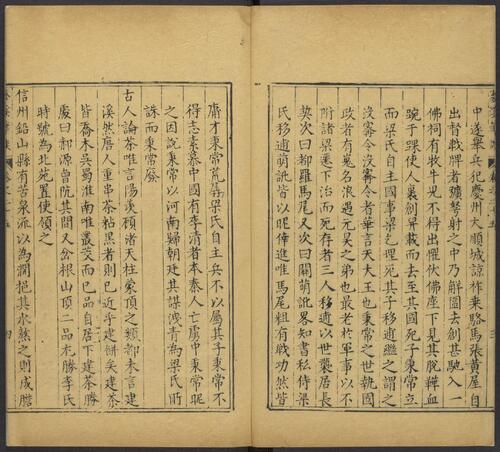 中遂舉兵犯慶州大順城諒祚乘駱馬張黃屋自
出督戰陴者彍弩射之中乃解圍去創甚馳入一
佛祠有牧牛兒不得出懼伏佛座下見其脫鞾血
涴于踝使人裹創舁載而去至其國死子秉常立
而梁氏自主國事梁乞埋死其子移逋繼之謂之
沒寧令沒寧令者華言天大王也秉常之世執國
政者有嵬名浪遇元昊之弟也最老於軍事以不
附諸梁遷下治而死存者三人移逋以世襲居長
契次曰都羅馬尾又次曰關萌訛略知書私侍梁
氏移逋萌訛皆以昵倖進唯馬尾粗有戰功然皆
庸才秉常荒孱梁氏自主兵不以屬其子秉常不
得志素慕中國有李清者本秦人亡虜中秉常昵
之因說秉常以河南歸朝廷其謀洩青為梁氏所
誅而秉常廢
古人論茶唯言陽羨顧渚天柱蒙頂之類都未言建
溪然唐人重串茶粘黑者則已近乎建餅矣建茶
皆喬木吳蜀淮南唯叢茭而已品自居下建茶勝
處曰郝源曾阬其間又岔根山頂二品尤勝李氏
時號為北苑置使領之
信州鉛山縣有苦泉派以為澗挹其水熬之則成膽
四